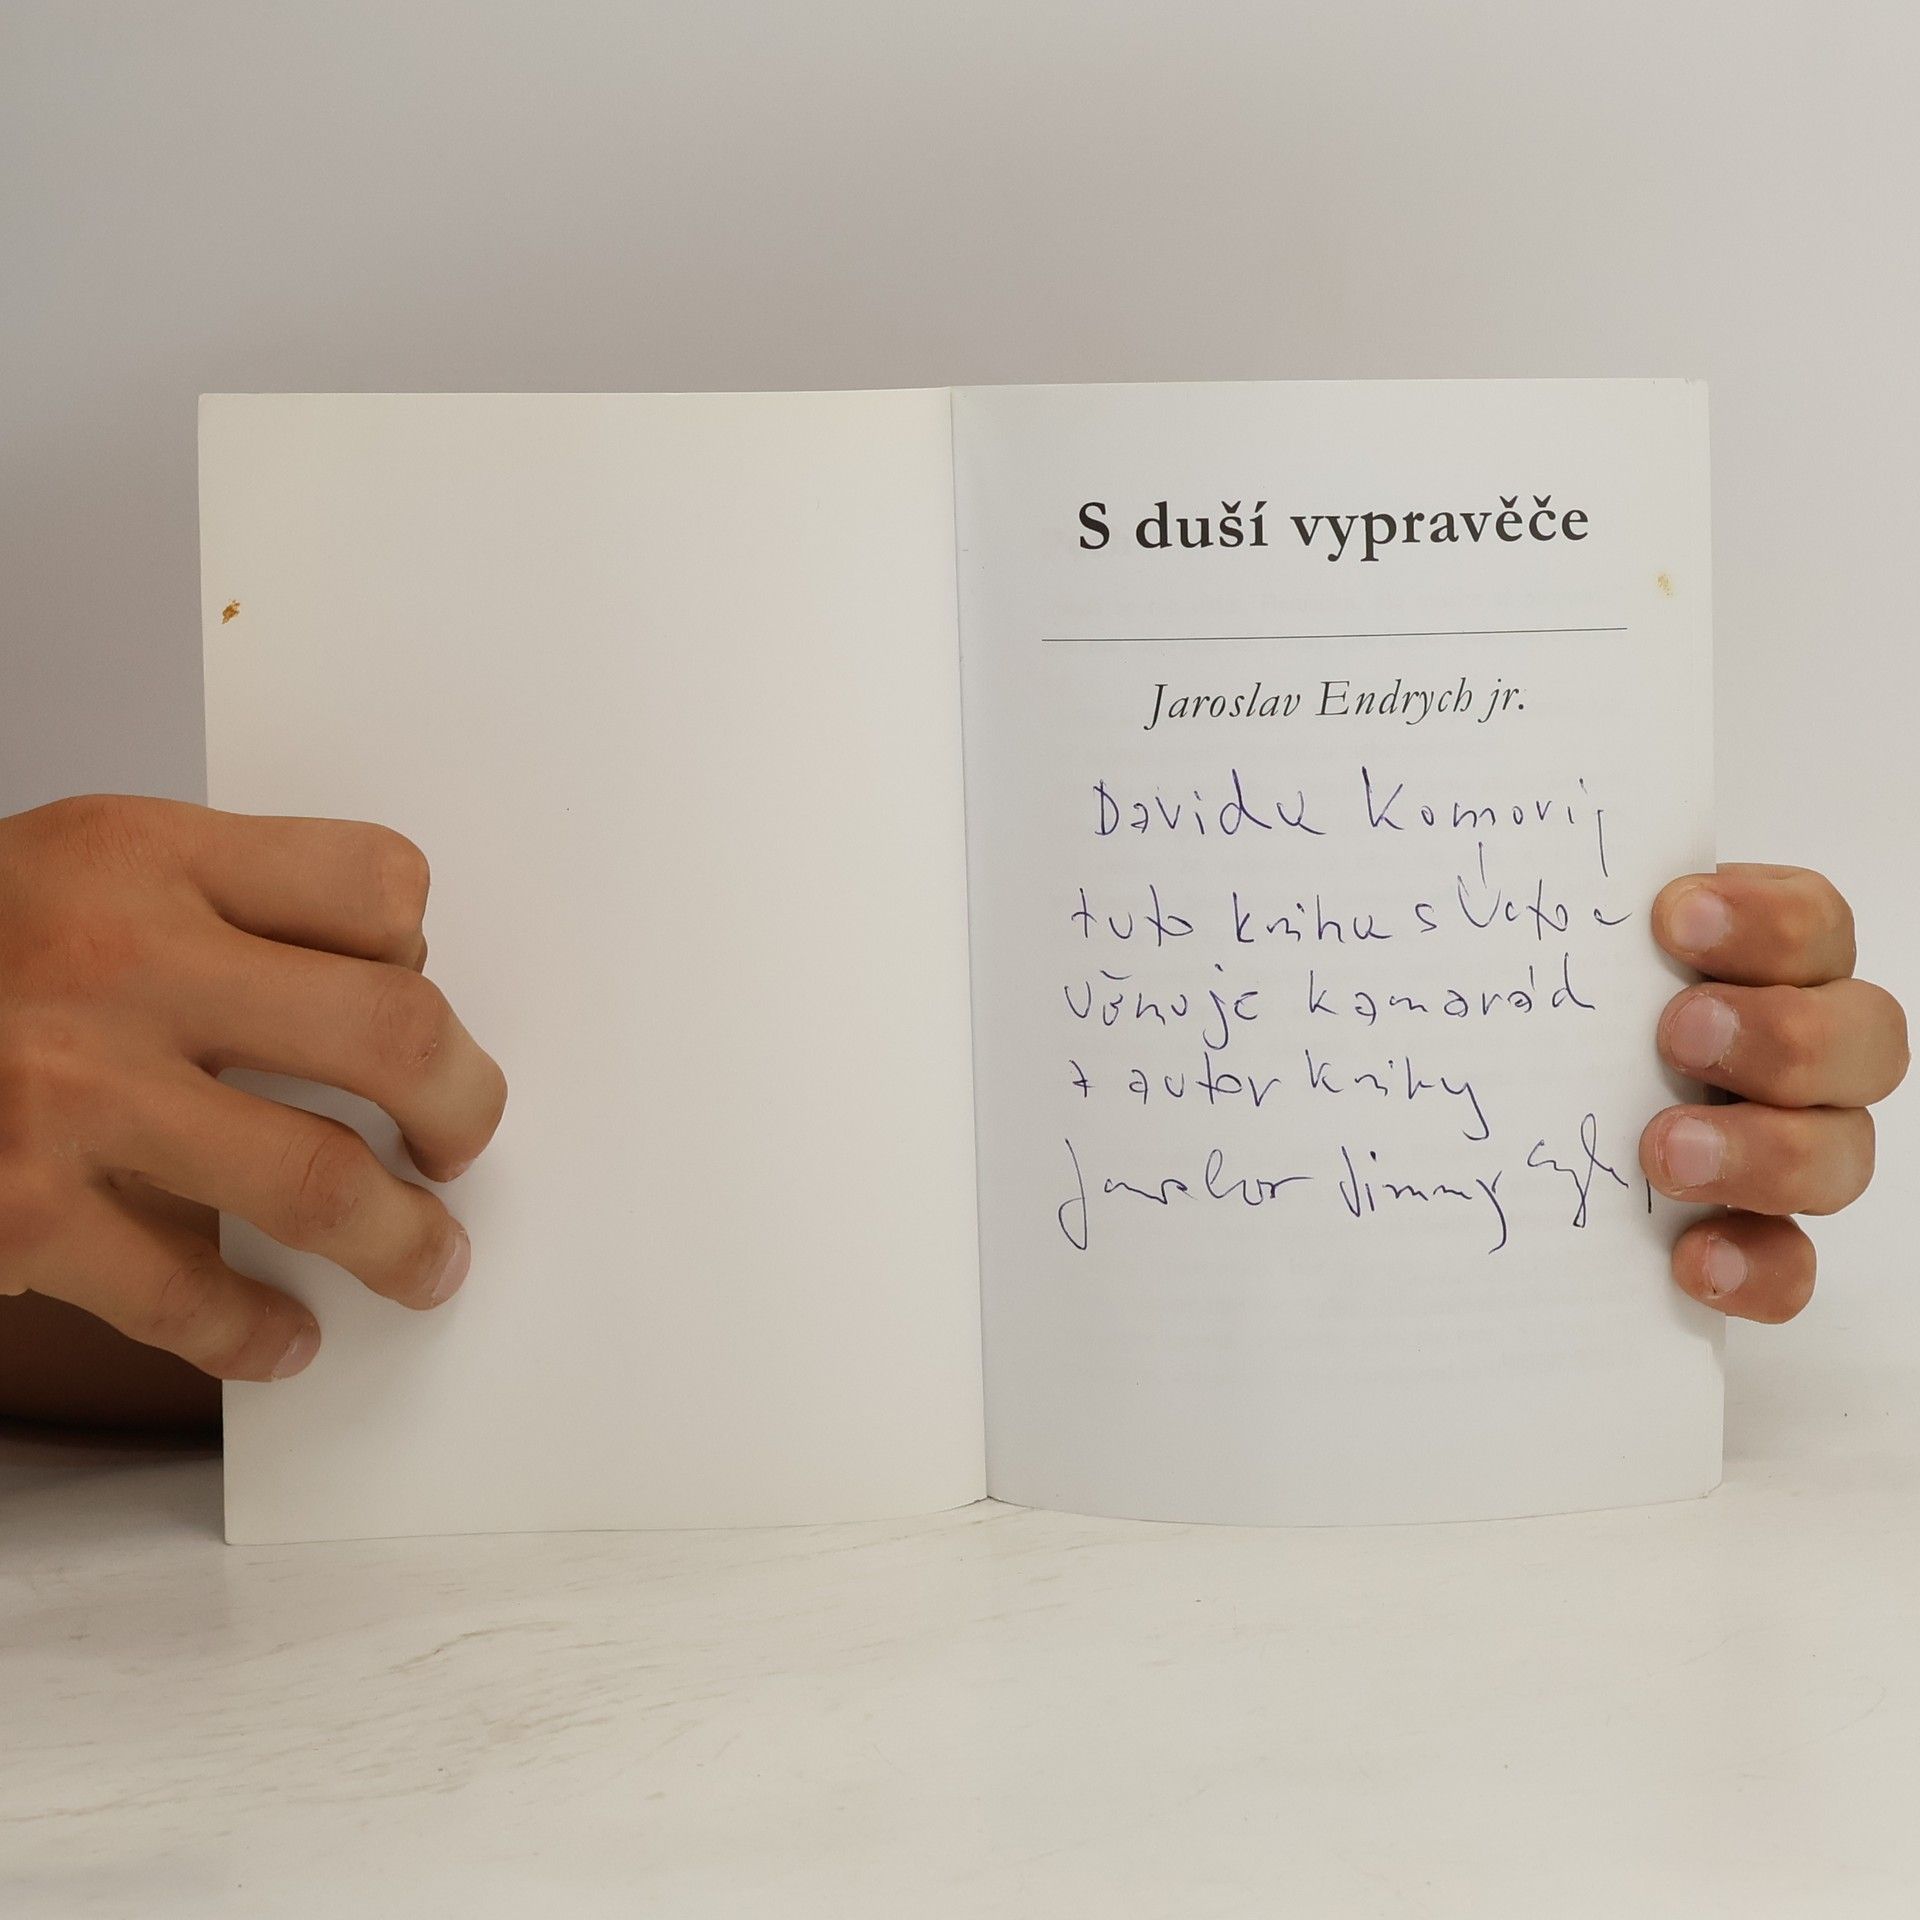 S duší vypravěče
Jaroslav Endrych jr.
Davidu Komovi,
tuto knihu s úcto u
věnuje kamarád
a autor knihy
Jaroslav Jimmy